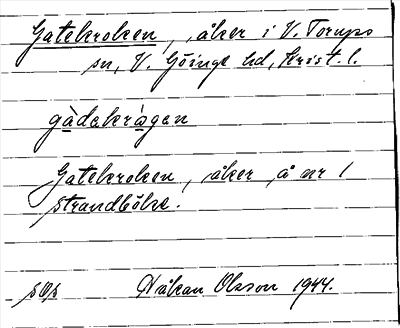 Gatekroken, åker i V. Torups
sn, V. Göinge hd, Krist. l.
gàdakrågen
Gatekroken, åker å nr 1
Strandböke.
Håkan Olsson 1944.